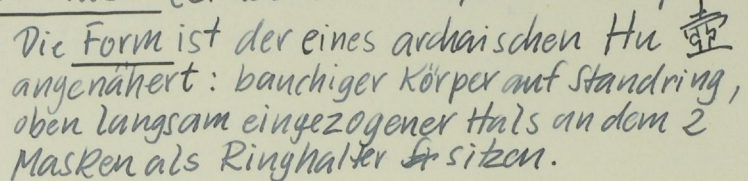 Die Form ist der eines archaischen Hu 壺
angenähert: bauchiger Körper auf Standring,
oben langsam eingezogener Hals an dem 2
Masken als Ringhalter sitzen.